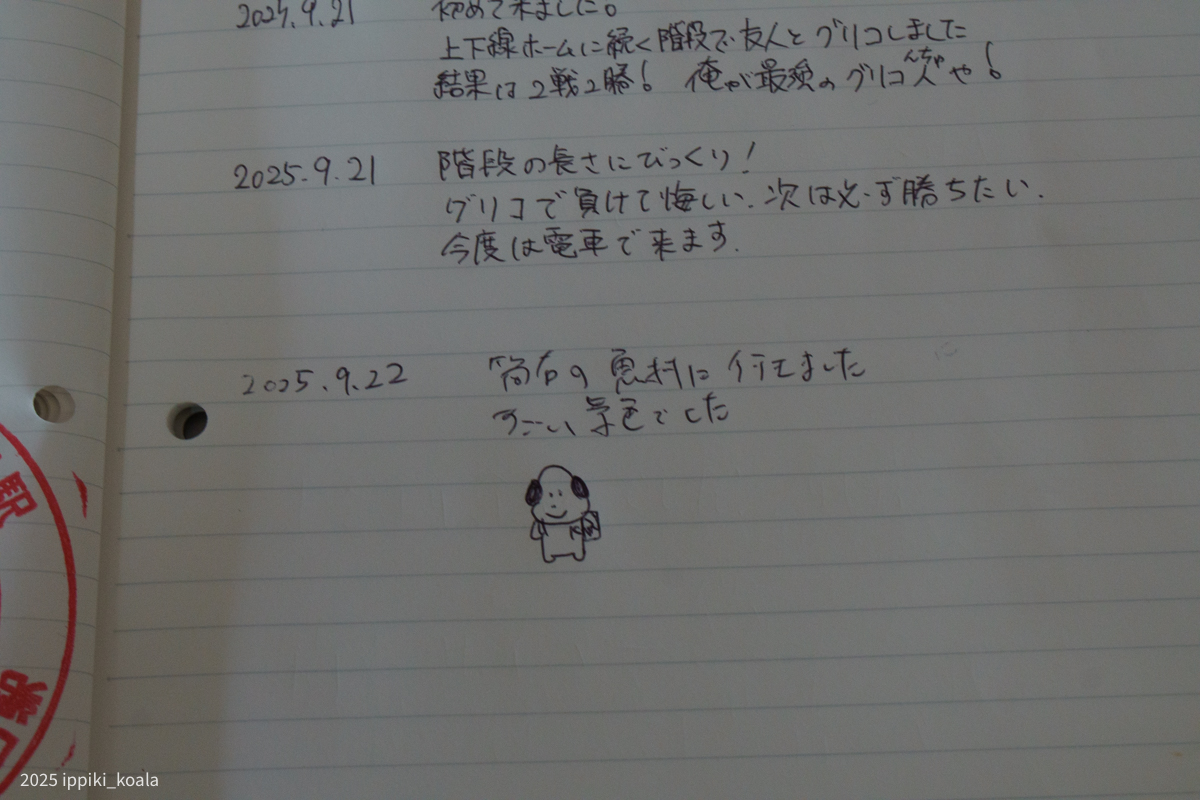 2025.9.21 初めて来ました。
上下線ホームに続く階段で友人とグリコしました
んちゅ
結果は2戦2勝! 俺が最強のグリコ人や!
2025.9.21 階段の長さにびっくり!
グリコで負けて悔しい.次は必ず勝ちたい.
今度は電車で来ます.
2025.9.22 筒石の 魚村に 行きました
すごい 景色でした
駅
2025 ippiki_koala